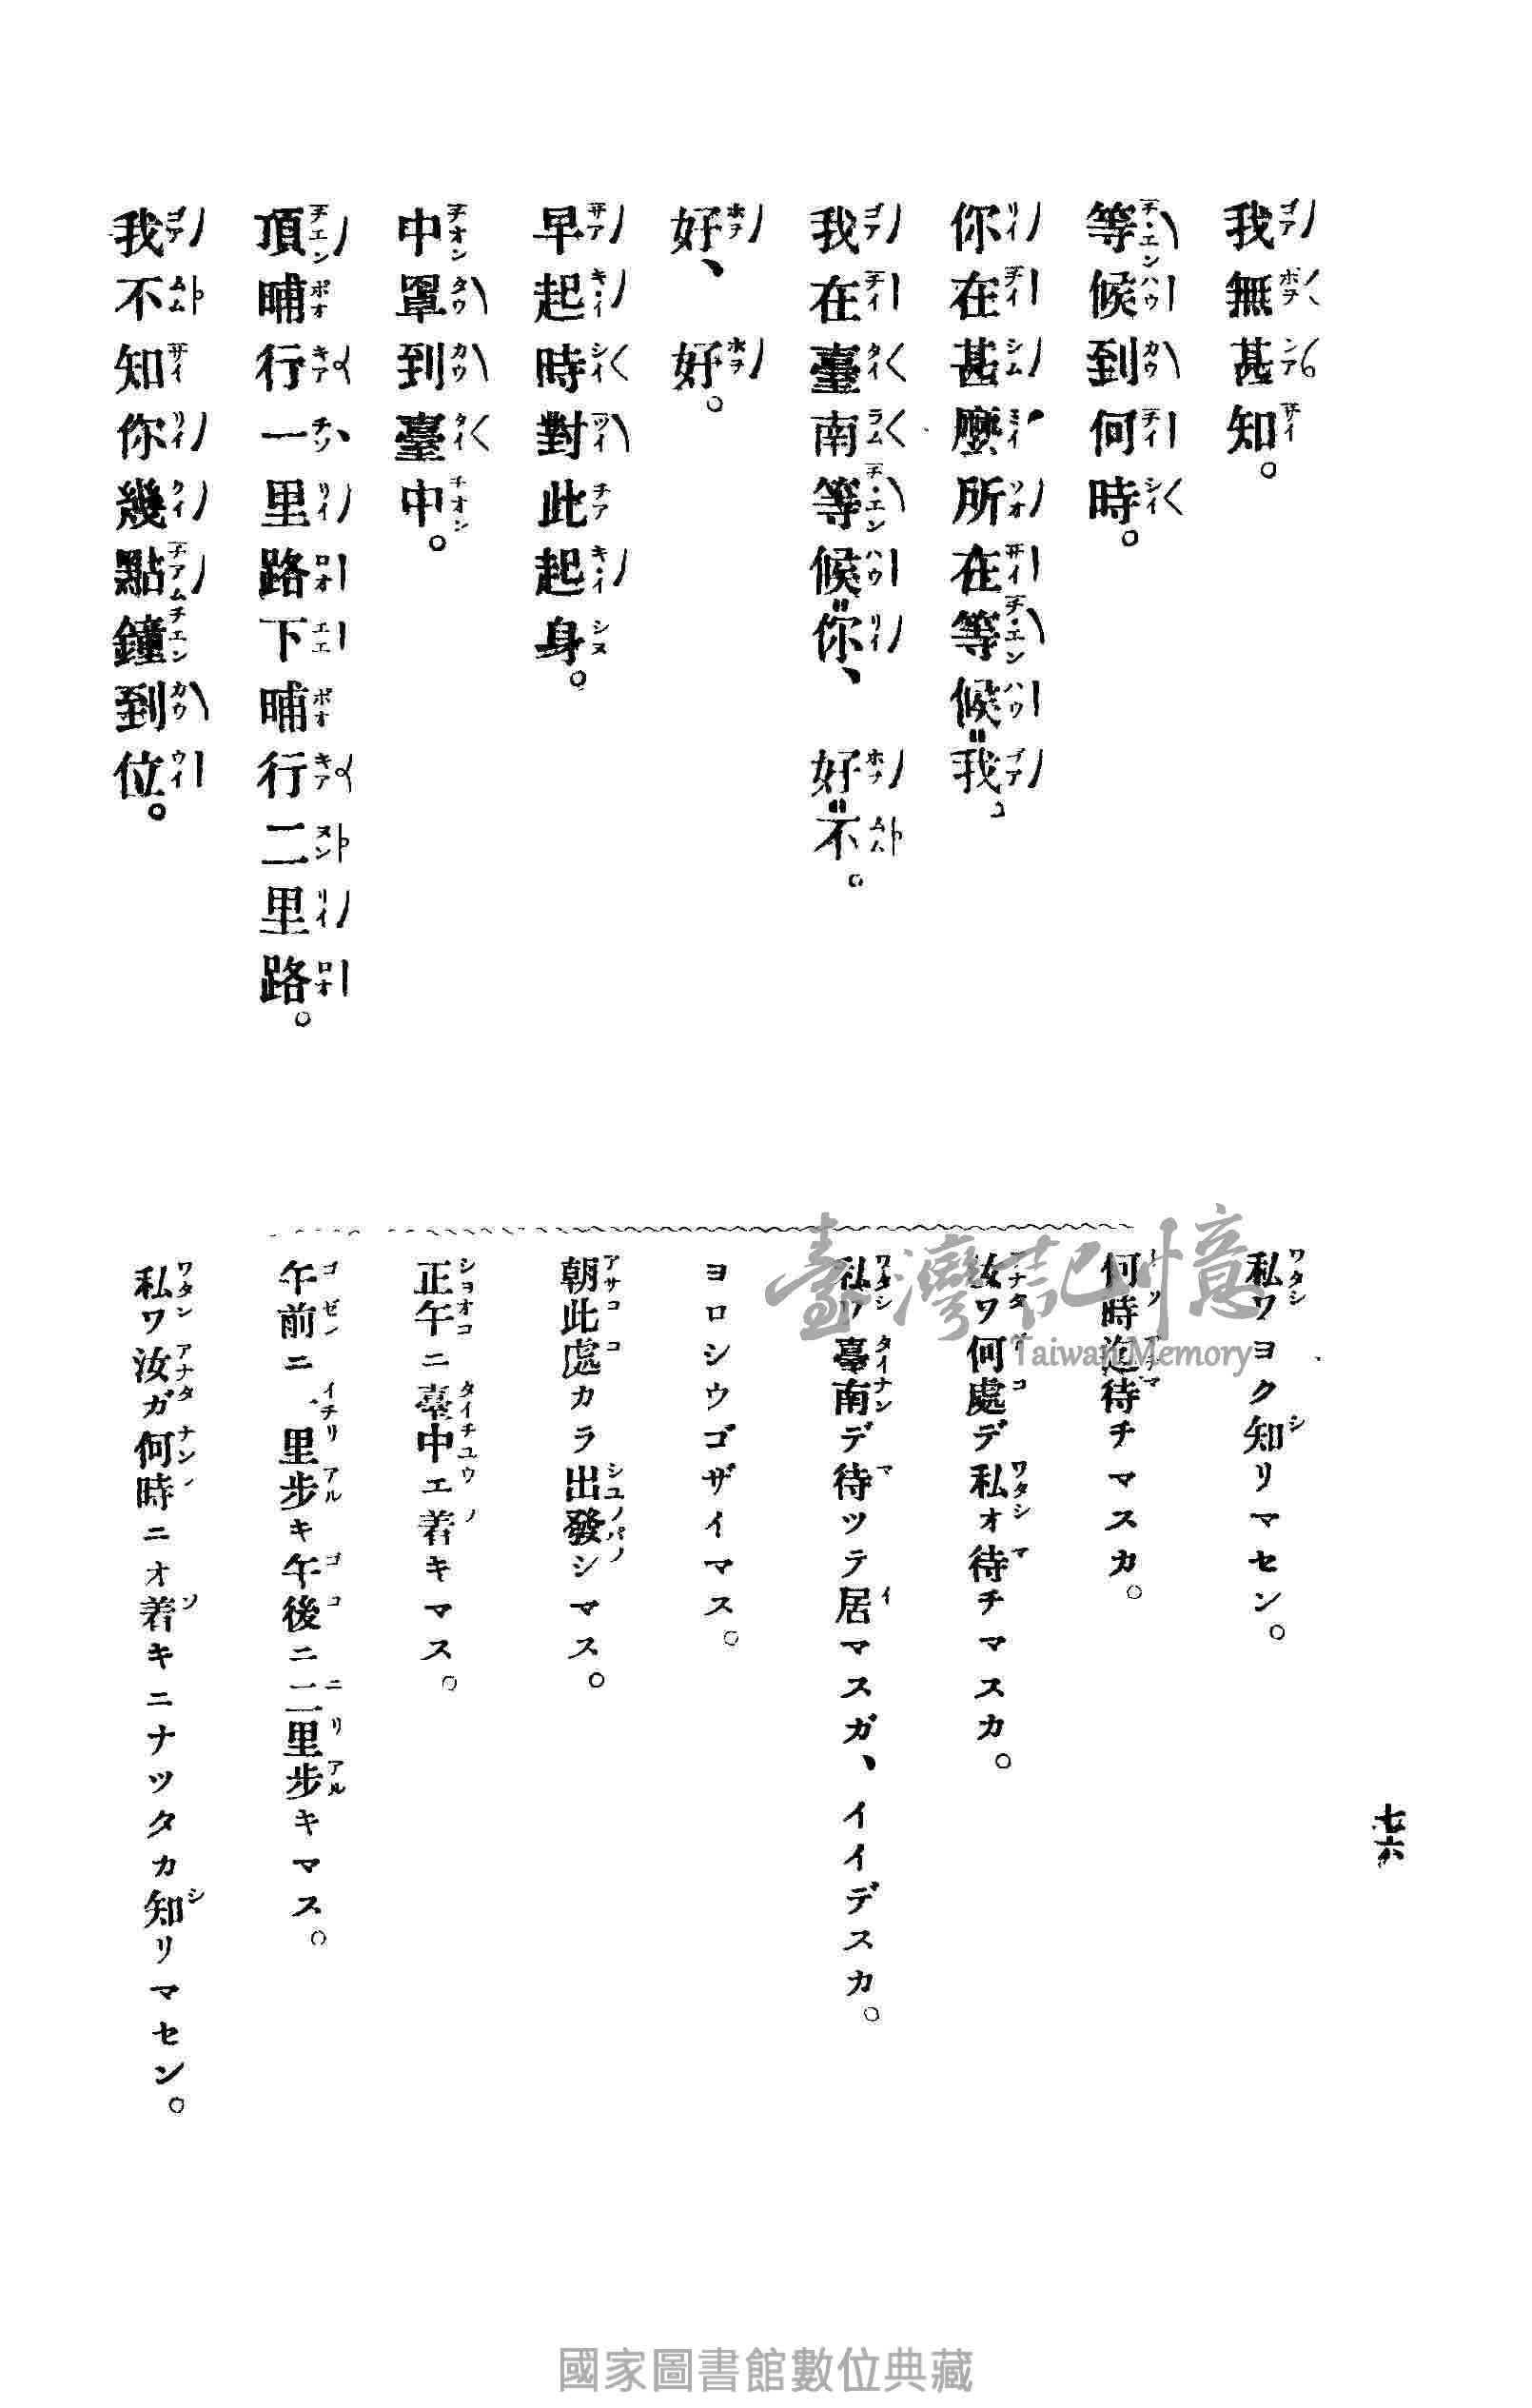 我無甚知。
等候到何時。
你在甚麼所在等候我。
我在臺南等候你、好不。
好、好。
早起時對此起身。
中罩到臺中。
頂晡行一里路下晡行二里路。
我不知你幾點鐘到位。
私ワヨク知リマセン。
何時迄待チマスカ。
汝ワ何處デ私オ待チマスカ。
私ワ臺南デ待ツテ居マスガ、イイデスカ。
ヨロシウゴザイマス。
朝此處カラ出發シマス。
正午ニ臺中エ着キマス。
午前ニ一里步キ午後ニ二里步キマス。
私ワ汝ガ何時ニオ着キニナツタカ知リマセン。
七六
臺灣記憶
Taiwan Memory
國家圖書館數位典藏